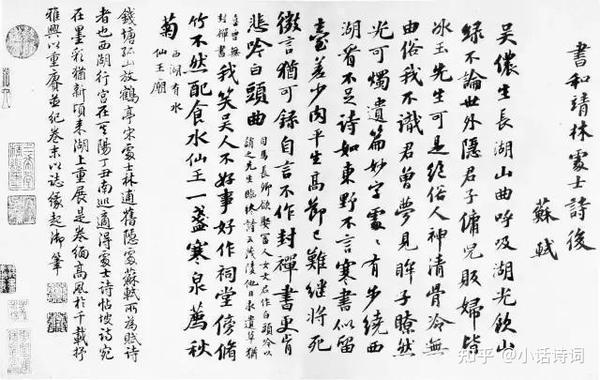 書和靖林處士詩後
蘇軾
吳儂生長湖山曲呼吸湖光飲山
綠不論世外隱君子傭兒販婦皆
冰玉先生可是絕俗人神清骨冷無
由俗我不識君曾夢見眸子瞭然
光可燭遺篇妙字處處有步繞西
湖看不足詩如東野不言寒書似留
臺差少肉平生高節已難繼將死
微言猶可錄自言不作封禪書更肯
悲吟白頭曲
司馬長卿欲娶富人女文君作白頭吟以
誚之先生臨終詩云茂陵他日求遺草猶
喜曾無
封禪書
我笑吳人不好事好作祠堂傍脩
竹不然配食水仙王一盞寒泉薦秋
菊
西湖有水
仙王廟
錢塘孤山放鶴亭宋處士林逋舊隱處蘇軾所為賦詩
者也西湖行宮在其陽丁丑南巡適得處士詩帖坡詩宛
在墨彩猶新頃來湖上重展是卷緬高風於千載抒
雅興以重賡並紀卷末以誌緣起御筆
知乎 @小话诗词